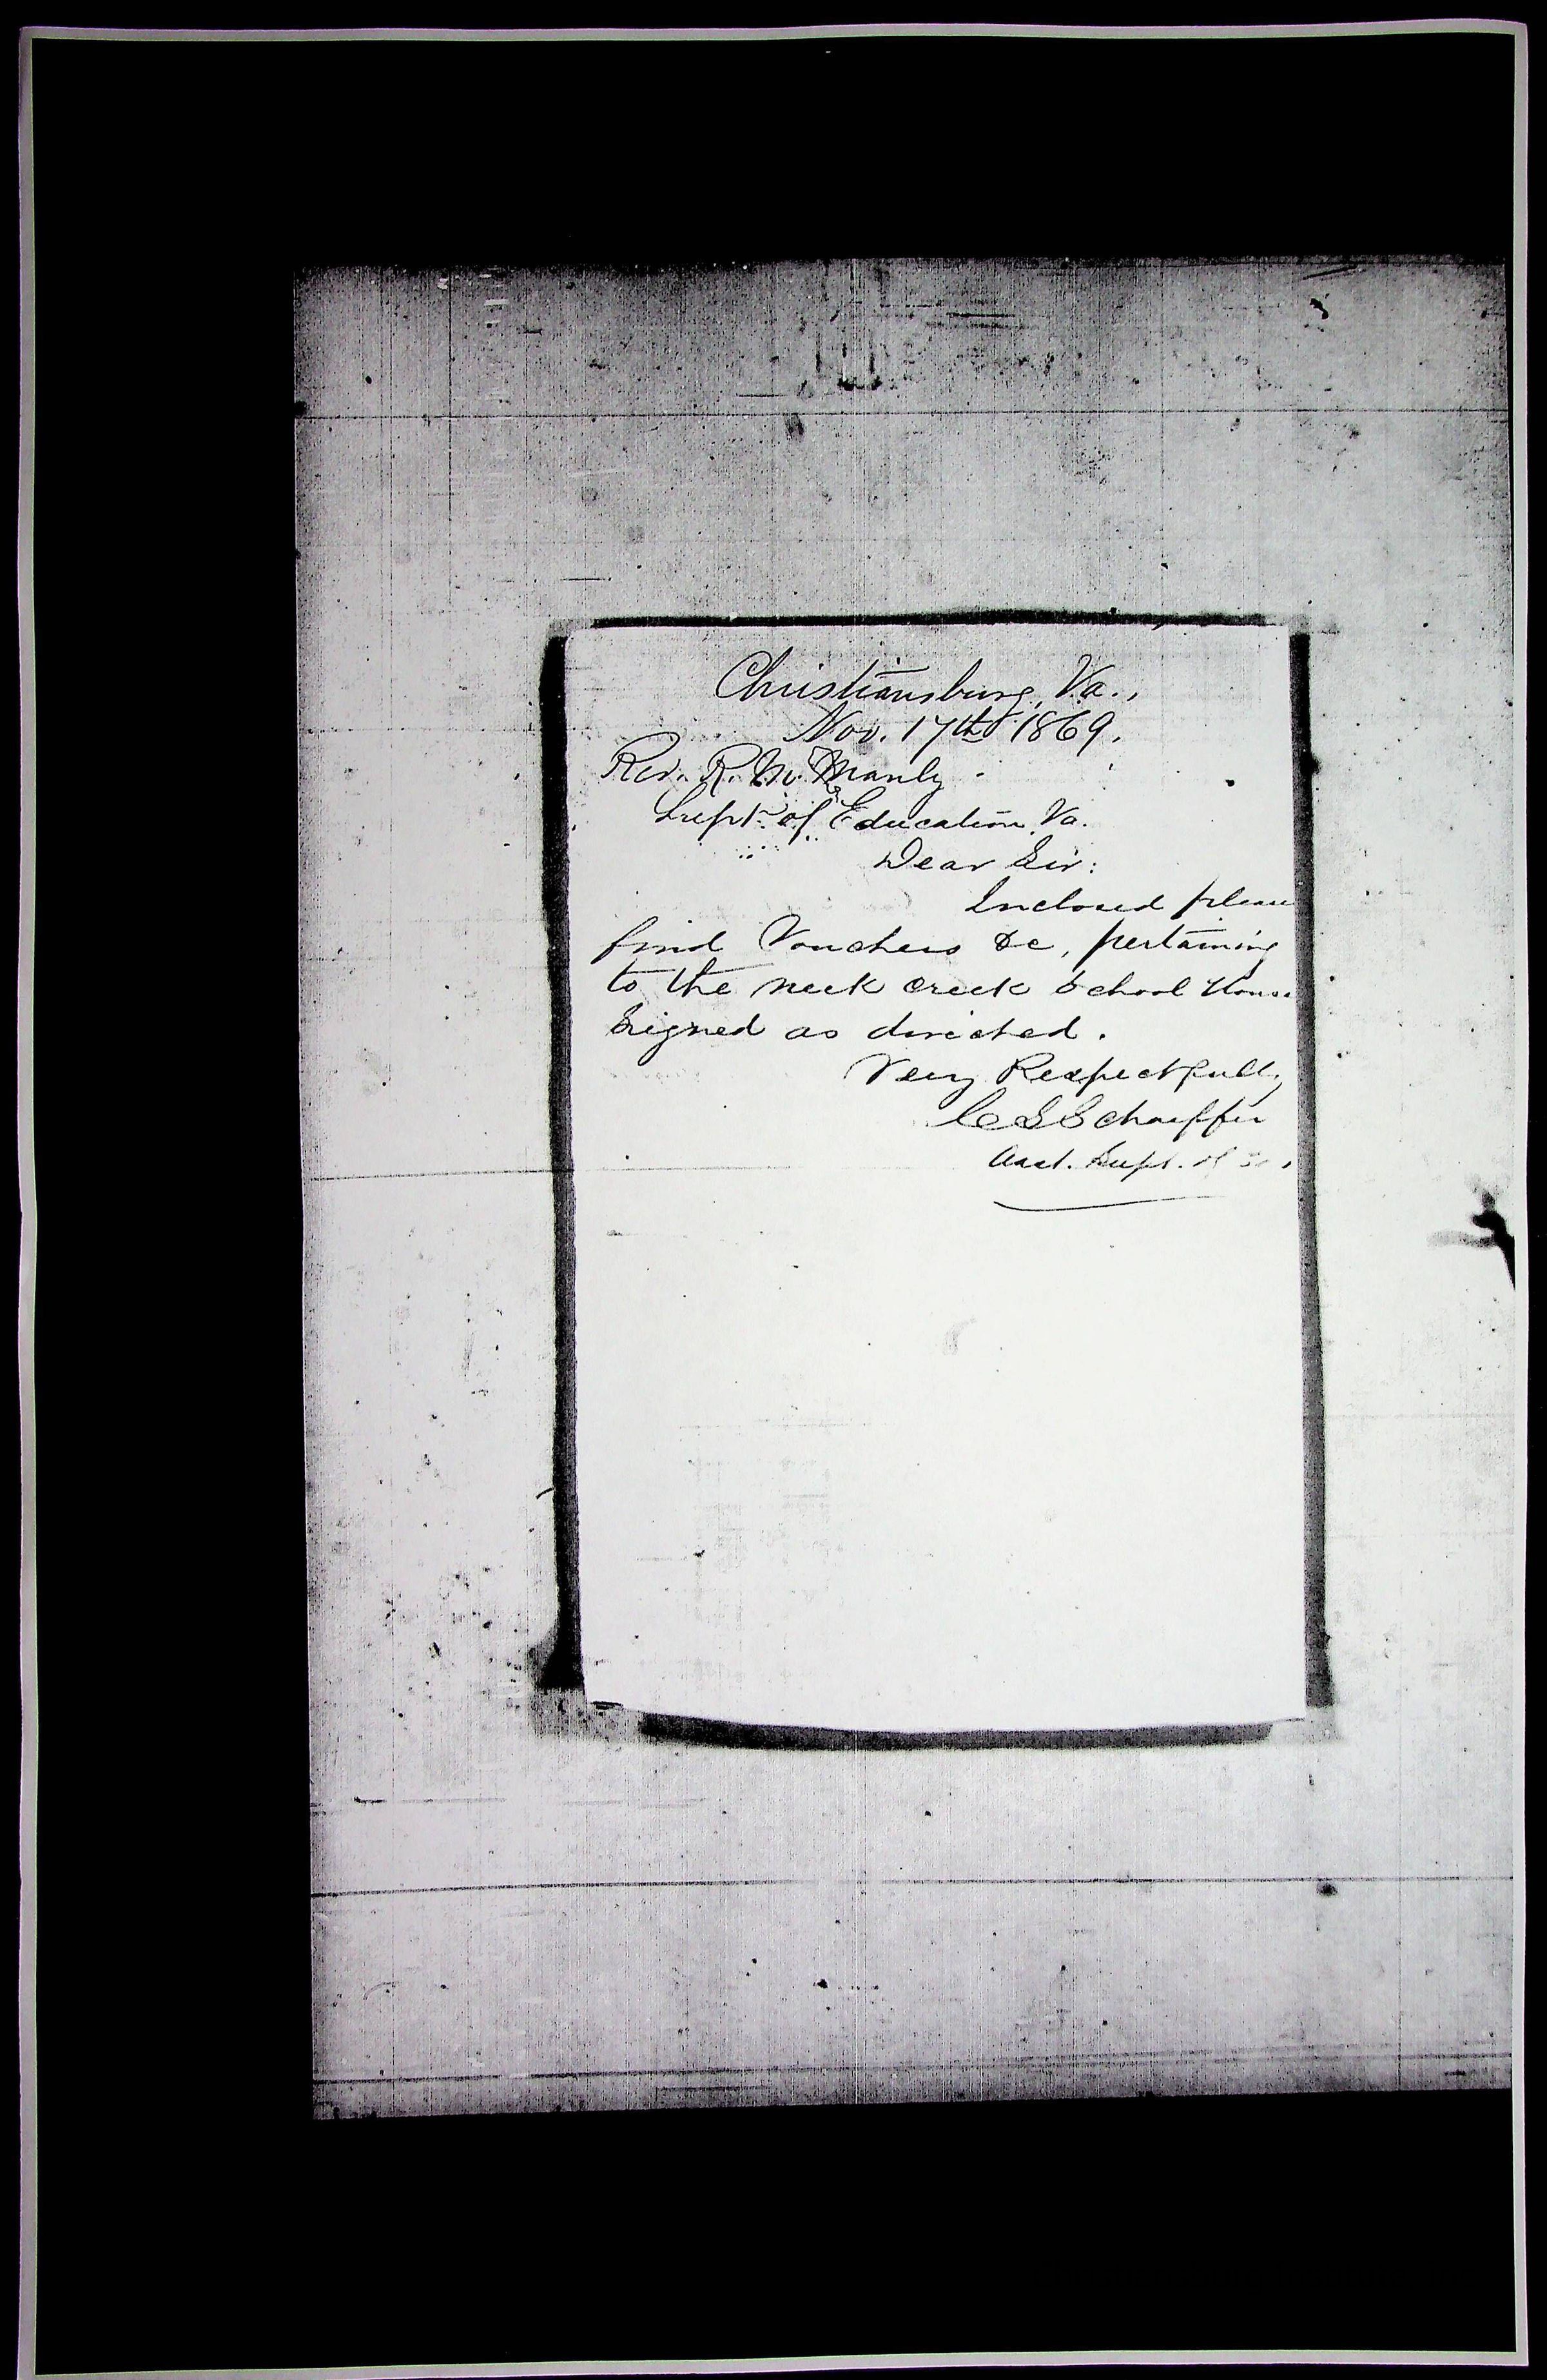 Christiansburg, Va.,
Nov. 17th 1869.
Rev. R. M. Manly
Supt. of Education, Va.
Dear Sir:
Inclosed please
find Vouchers &c, pertaining
to the neck creek School House
Signed as directed.
Very Respectfully
C S Schaeffer
Asst. Supt. of